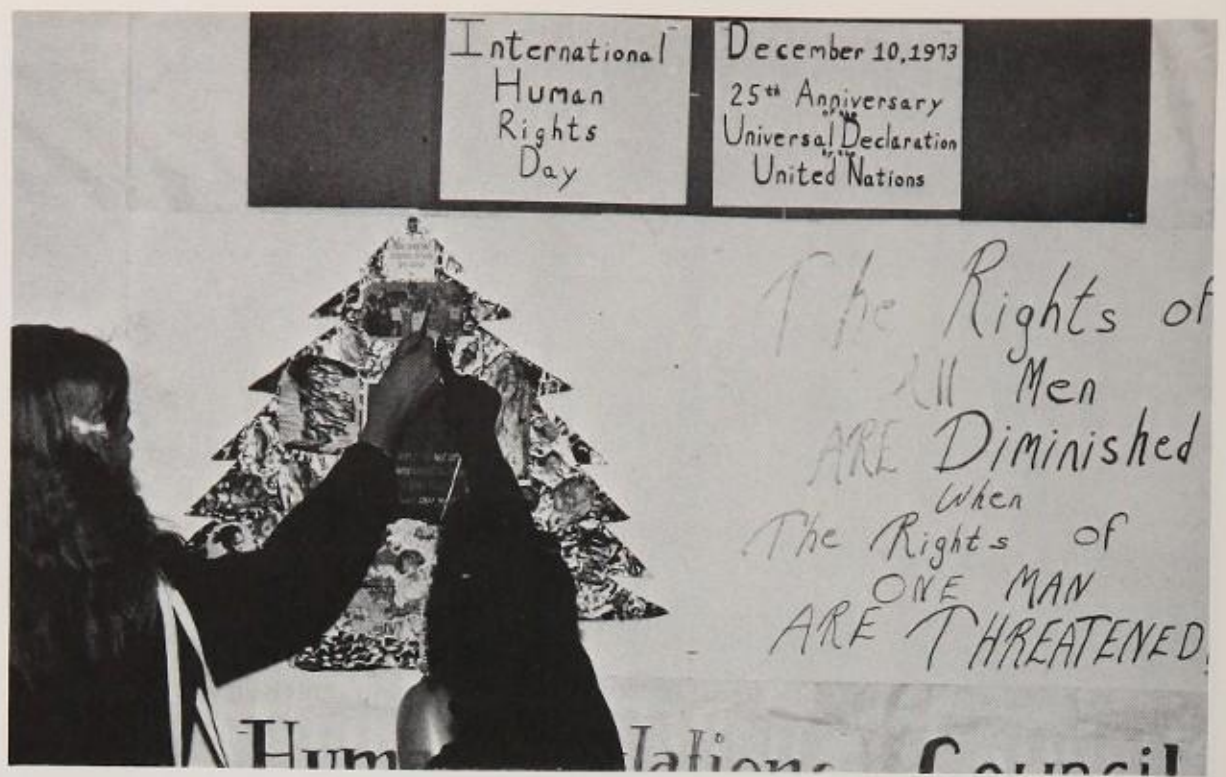 International
Human
Rights
Day
December 10, 1973
25th Anniversary
of the
Universal Declaration
of the
United Nations
The Rights of
All Men
ARE Diminished
when
The Rights of
ONE MAN
ARE THREATENED!
Council